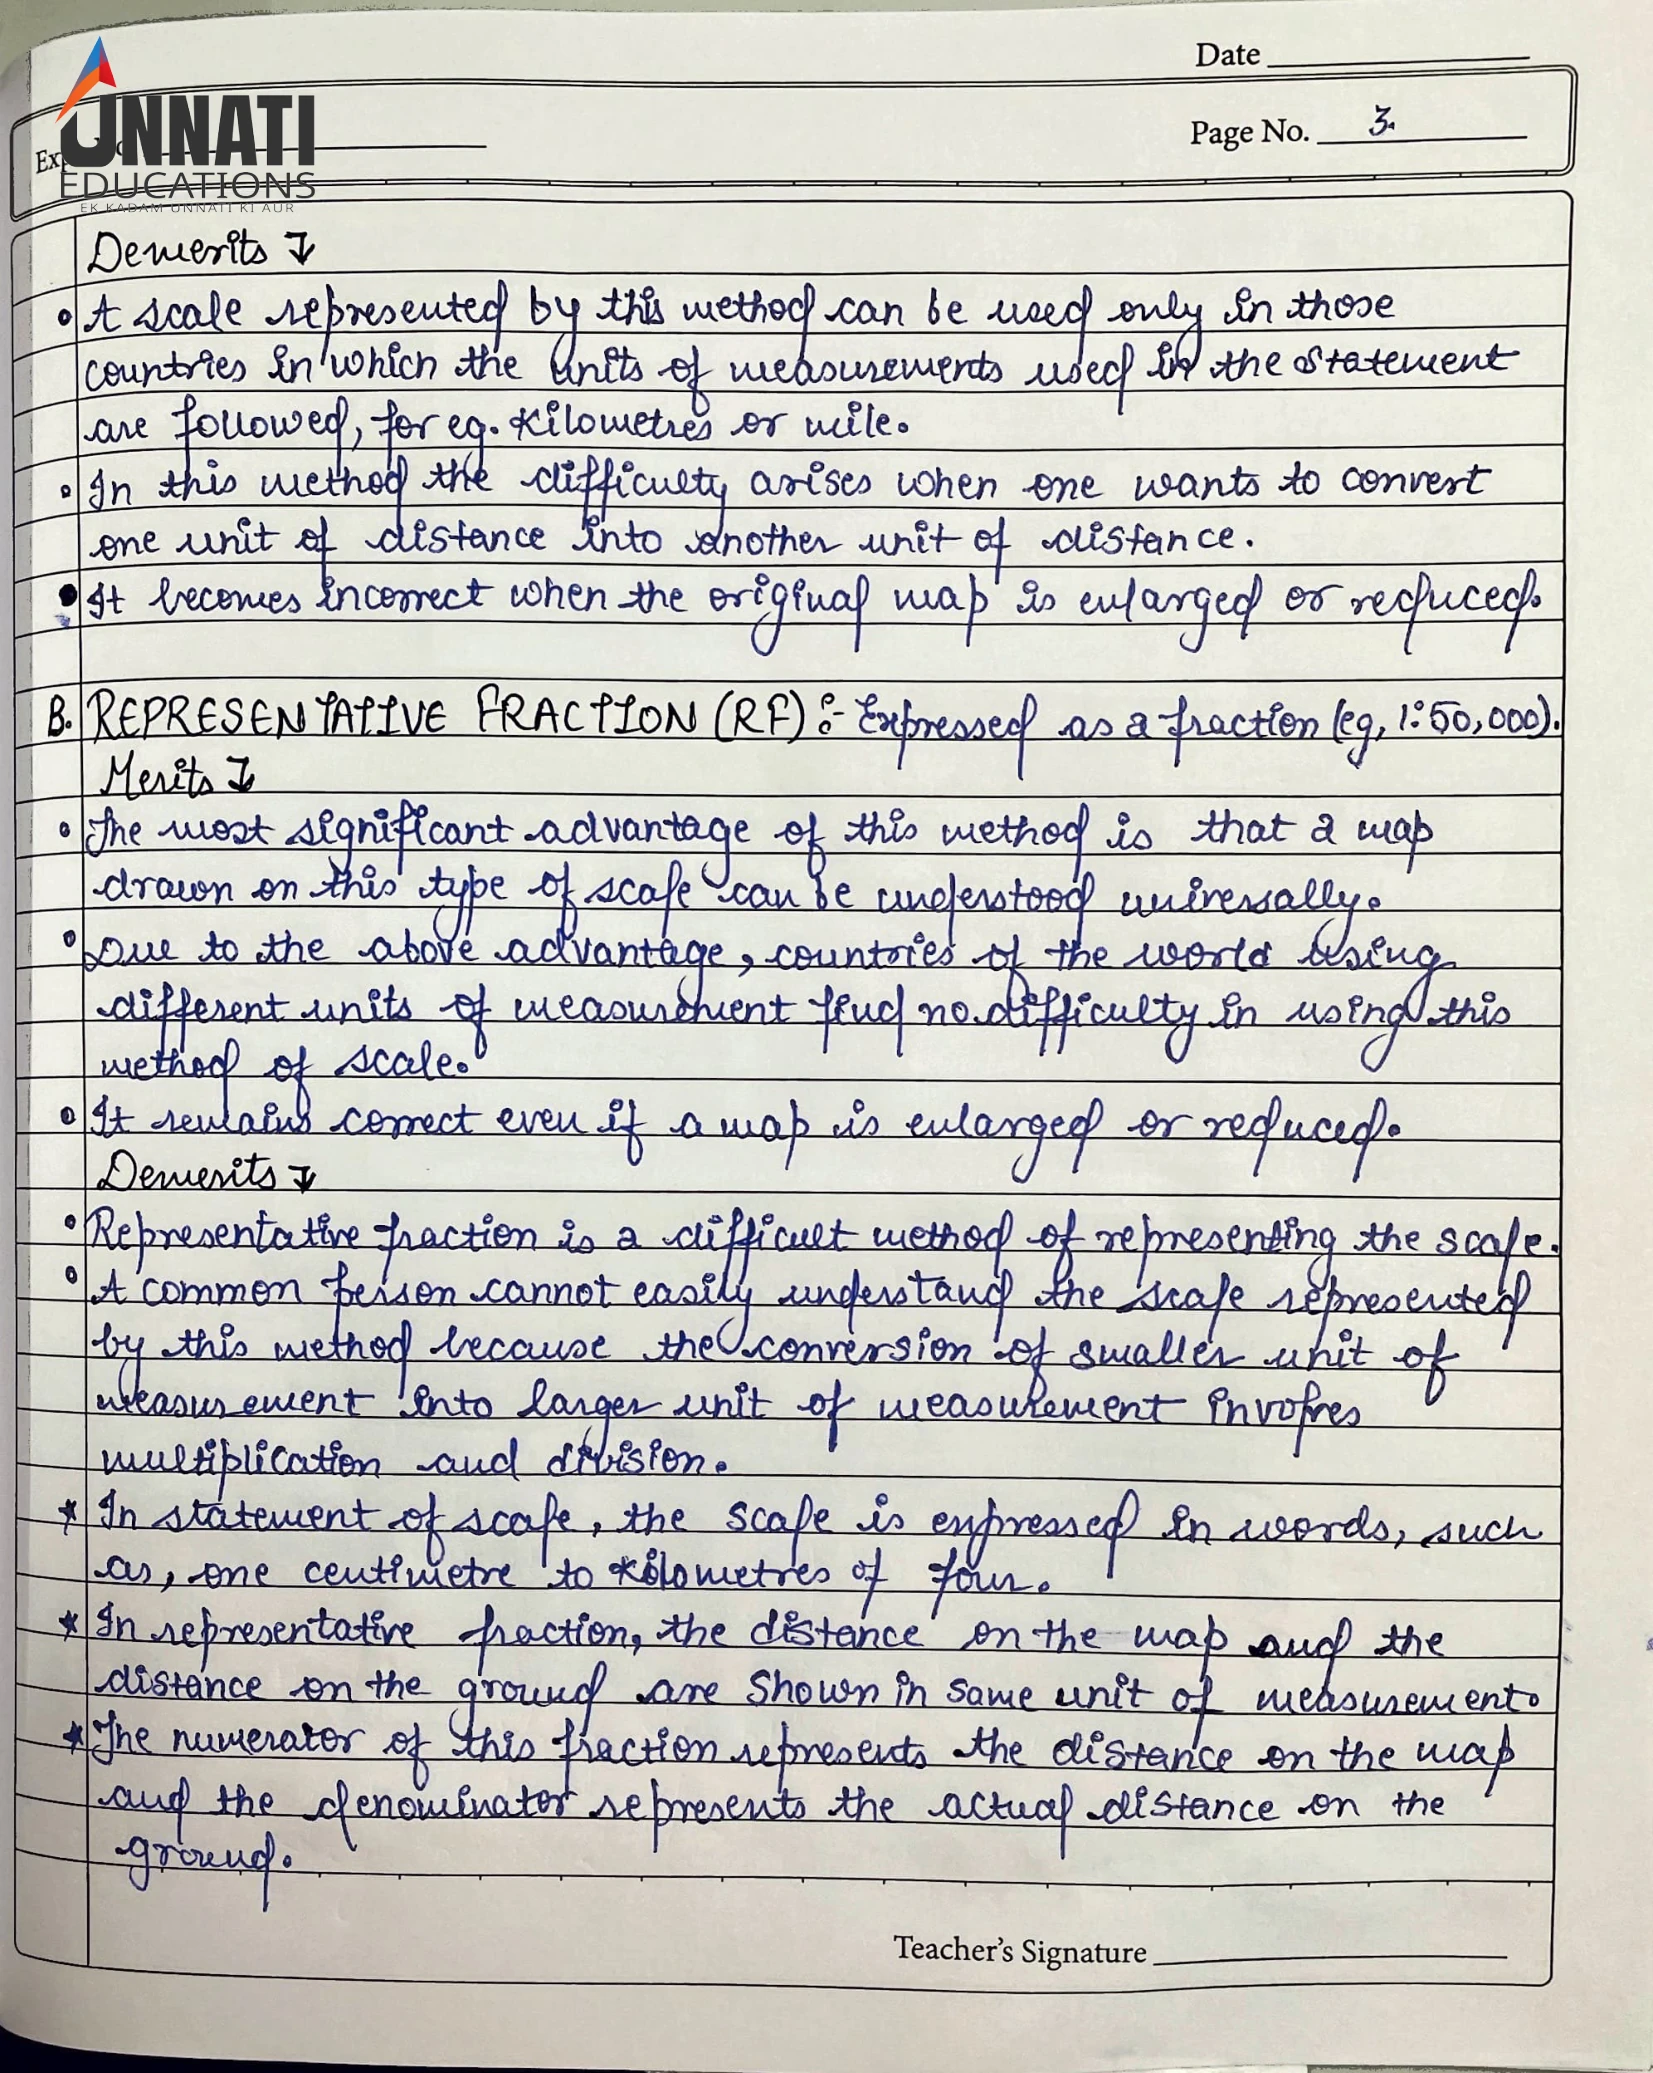 Date
UNNATI
EDUCATIONS
EK KADAM UNNATI KI AUR
Page No. 3.
Demerits ↓
• A scale represented by this method can be used only in those
countries in which the units of measurements used in the statement
are followed, for eg. Kilometres or mile.
• In this method the difficulty arises when one wants to convert
one unit of distance into another unit of distance.
• It becomes incorrect when the original map is enlarged or reduced.
B. REPRESENTATIVE FRACTION (RF) :- Expressed as a fraction (eg, 1:50,000).
Merits ↓
• The most significant advantage of this method is that a map
drawn on this type of scale can be understood universally.
• Due to the above advantage, countries of the world using
different units of measurement find no difficulty in using this
method of scale.
• It remains correct even if a map is enlarged or reduced.
Demerits ↓
• Representative fraction is a difficult method of representing the scale.
• A common person cannot easily understand the scale represented
by this method because the conversion of smaller unit of
measurement into larger unit of measurement involves
multiplication and division.
* In statement of scale, the scale is expressed in words, such
as, one centimetre to kilometres of four.
* In representative fraction, the distance on the map and the
distance on the ground are shown in same unit of measurement.
* The numerator of this fraction represents the distance on the map
and the denominator represents the actual distance on the
ground.
Teacher's Signature